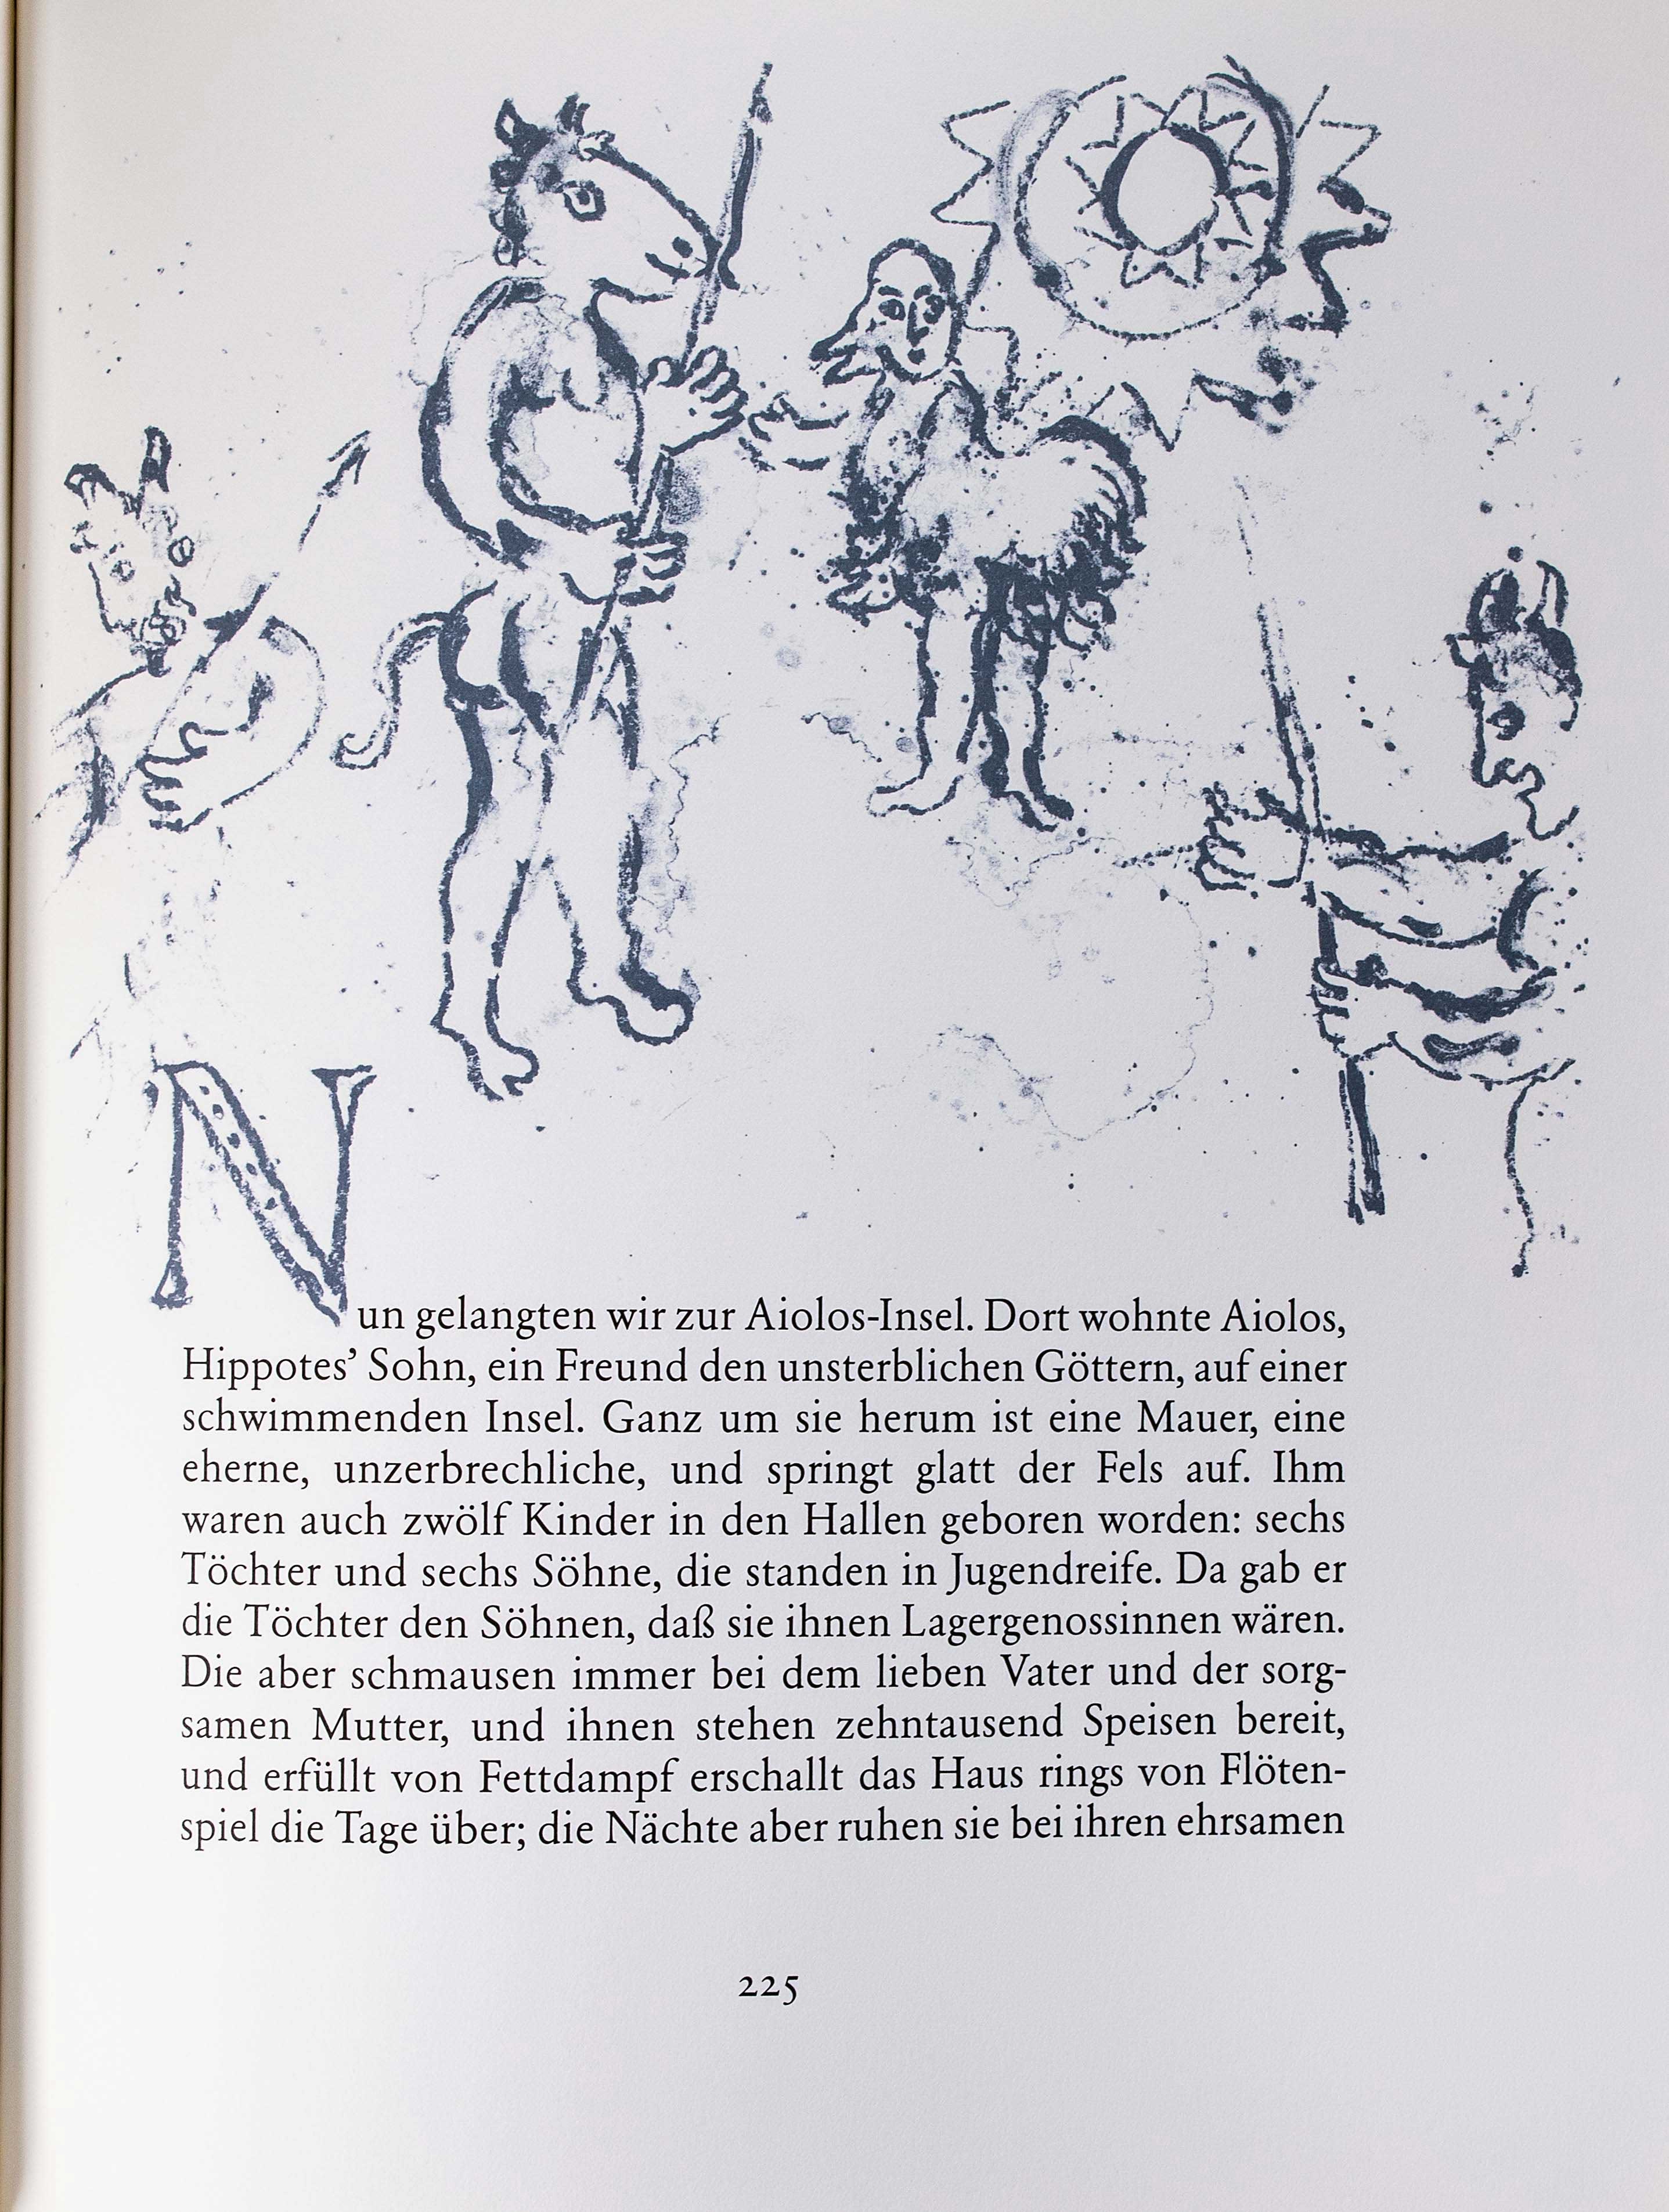 Nun gelangten wir zur Aiolos-Insel. Dort wohnte Aiolos,
Hippotes’ Sohn, ein Freund den unsterblichen Göttern, auf einer
schwimmenden Insel. Ganz um sie herum ist eine Mauer, eine
eherne, unzerbrechliche, und springt glatt der Fels auf. Ihm
waren auch zwölf Kinder in den Hallen geboren worden: sechs
Töchter und sechs Söhne, die standen in Jugendreife. Da gab er
die Töchter den Söhnen, daß sie ihnen Lagergenossinnen wären.
Die aber schmausen immer bei dem lieben Vater und der sorg-
samen Mutter, und ihnen stehen zehntausend Speisen bereit,
und erfüllt von Fettdampf erschallt das Haus rings von Flöten-
spiel die Tage über; die Nächte aber ruhen sie bei ihren ehrsamen
225